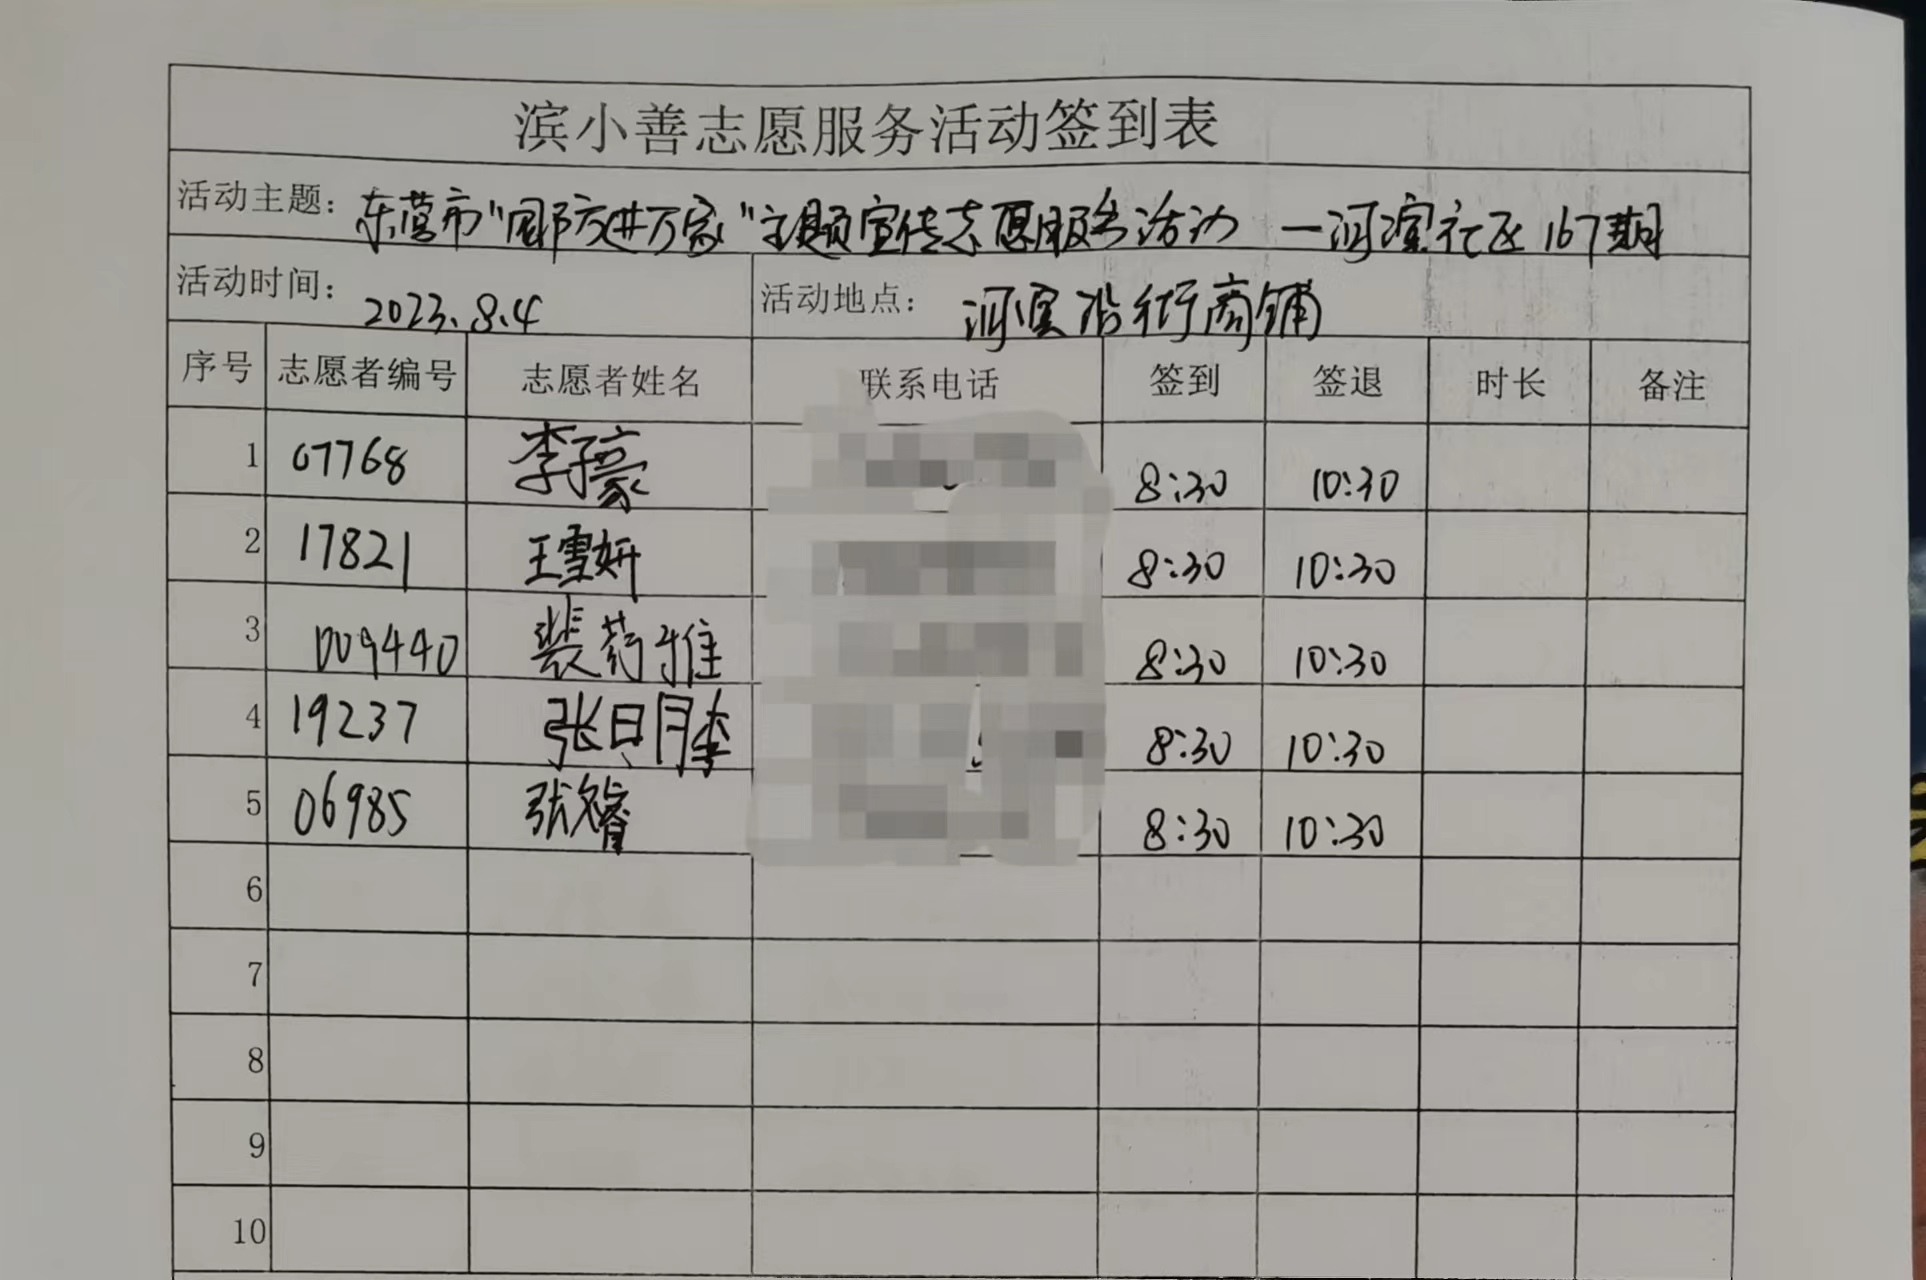 滨小善志愿服务活动签到表
活动主题：东营市"国防进万家"主题宣传志愿服务活动 — 河滨社区167期
活动时间：2023.8.4 活动地点：河滨沿街商铺
序号 志愿者编号 志愿者姓名 联系电话 签到 签退 时长 备注
1 07768 李子豪 8:30 10:30
2 17821 王雪妍 8:30 10:30
3 009440 裴药雅 8:30 10:30
4 19237 张 8:30 10:30
5 06985 张文睿 8:30 10:30
6
7
8
9
10